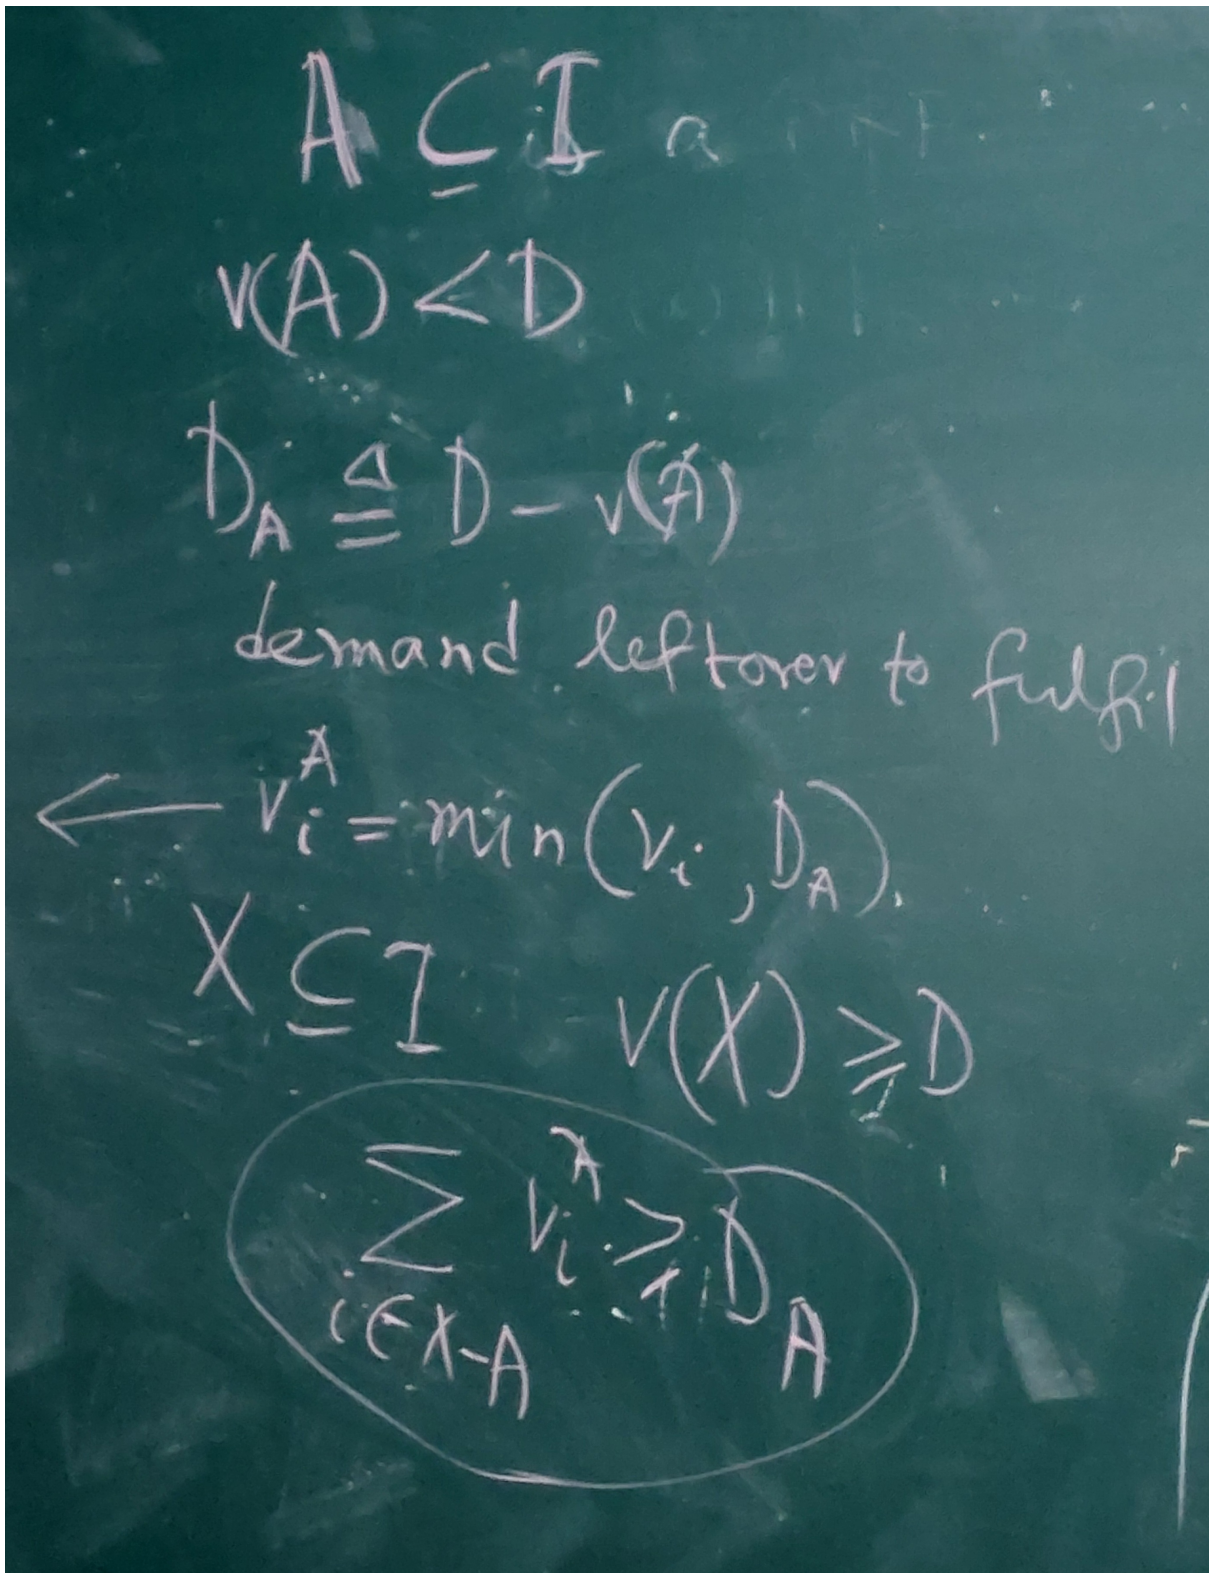 A ⊆ I
v(A) < D
D_A ≜ D - v(A)
demand leftover to fulfil
← v_i^A = min(v_i, D_A).
X ⊆ I v(X) ≥ D
∑_{i∈X-A} v_i^A ≥ D_A